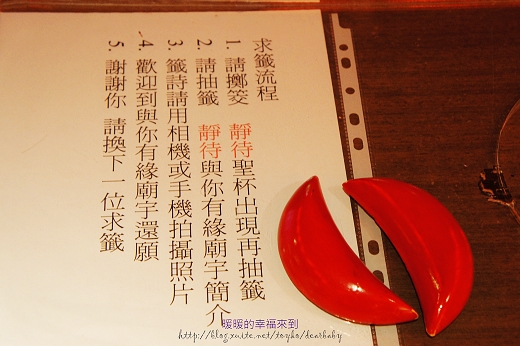 求籤流程
1. 請擲筊 靜待聖杯出現再抽籤
2. 請抽籤 靜待與你有緣廟宇簡介
3. 籤詩請用相機或手機拍攝照片
4. 歡迎到與你有緣廟宇還願
5. 謝謝你 請換下一位求籤
暖暖的幸福來到
http://blog.xuite.net/toyko/dearbaby